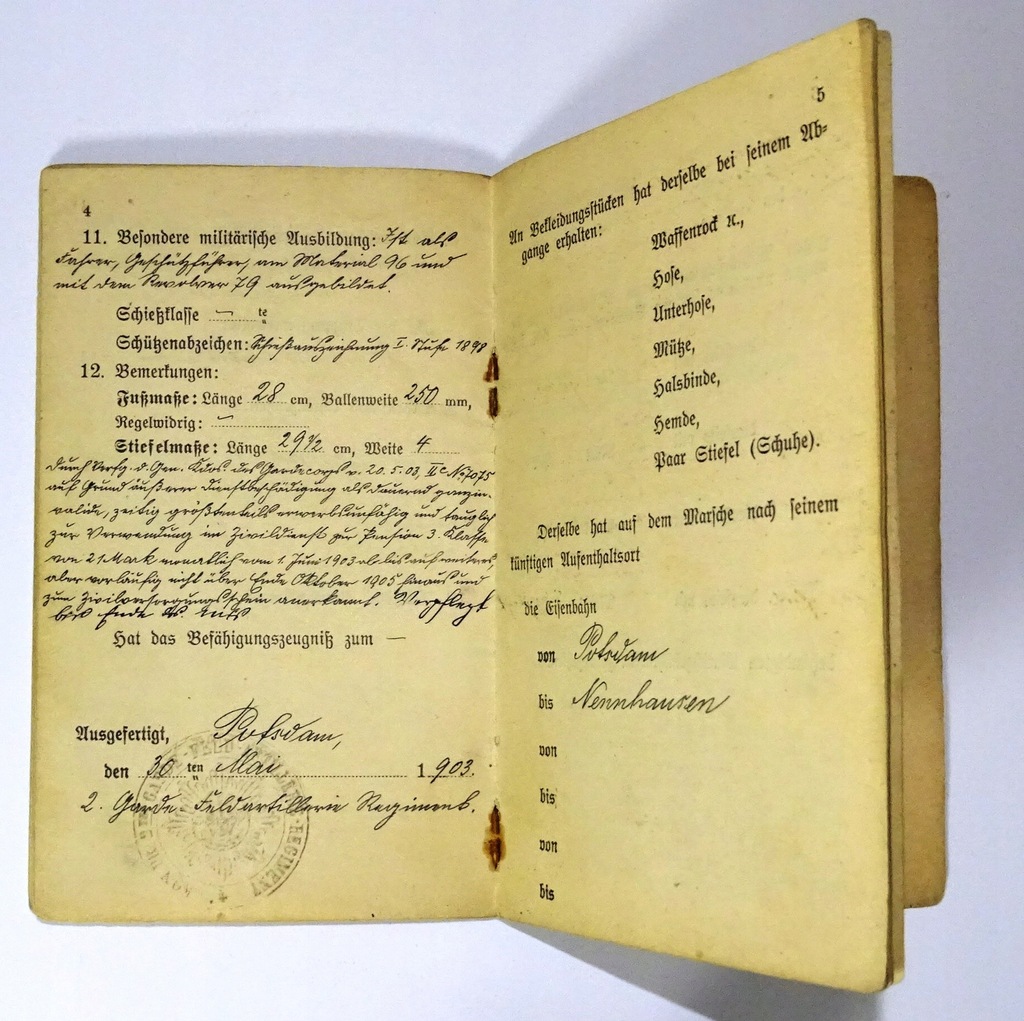 4
11. Besondere militärische Ausbildung: Ist als
Fahrer, Geschützführer, am Material 96 und
mit dem Revolver 79 ausgebildet.
Schießklasse — te
Schützenabzeichen: Schießauszeichnung I. Stufe 1898
12. Bemerkungen:
Fußmaße: Länge 28 cm, Ballenweite 250 mm,
Regelwidrig: —
Stiefelmaße: Länge 29 1/2 cm, Weite 4
Durch Verfg. d. Gen. Kdos des Gardecorps v. 20.5.03, IIc No 7075
auf Grund äußerer Dienstbeschädigung als dauernd ganzin-
valide, zeitig größtenteils erwerbsunfähig und tauglich
zur Verwendung im Zivildienst zur Pension 3. Klasse
von 21 Mark monatlich vom 1. Juni 1903 ab bis auf weiteres,
aber vorläufig nicht über Ende Oktober 1905 hinaus und
zum Zivilversorgungsschein anerkannt. Verpflegt
bis Ende
Hat das Befähigungszeugniß zum —
Ausgefertigt, Potsdam,
den 30 ten Mai 1903.
2. Garde Feldartillerie Regiment.
5
An Bekleidungsstücken hat derselbe bei seinem Ab-
gange erhalten:
Waffenrock ꝛc.,
Hose,
Unterhose,
Mütze,
Halsbinde,
Hemde,
Paar Stiefel (Schuhe).
Derselbe hat auf dem Marsche nach seinem
künftigen Aufenthaltsort
die Eisenbahn
von Potsdam
bis Nennhausen
von
bis
von
bis